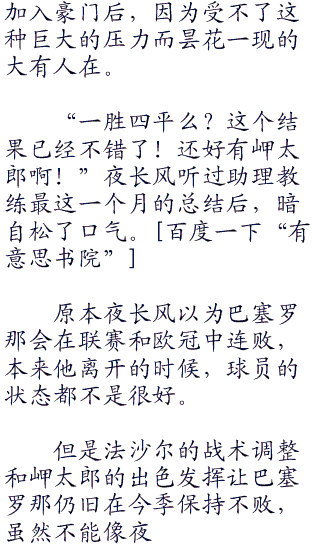 加入豪门后，因为受不了这
种巨大的压力而昙花一现的
大有人在。
“一胜四平么？这个结
果已经不错了！还好有岬太
郎啊！”夜长风听过助理教
练最这一个月的总结后，暗
自松了口气。[百度一下“有
意思书院”]
原本夜长风以为巴塞罗
那会在联赛和欧冠中连败，
本来他离开的时候，球员的
状态都不是很好。
但是法沙尔的战术调整
和岬太郎的出色发挥让巴塞
罗那仍旧在今季保持不败，
虽然不能像夜